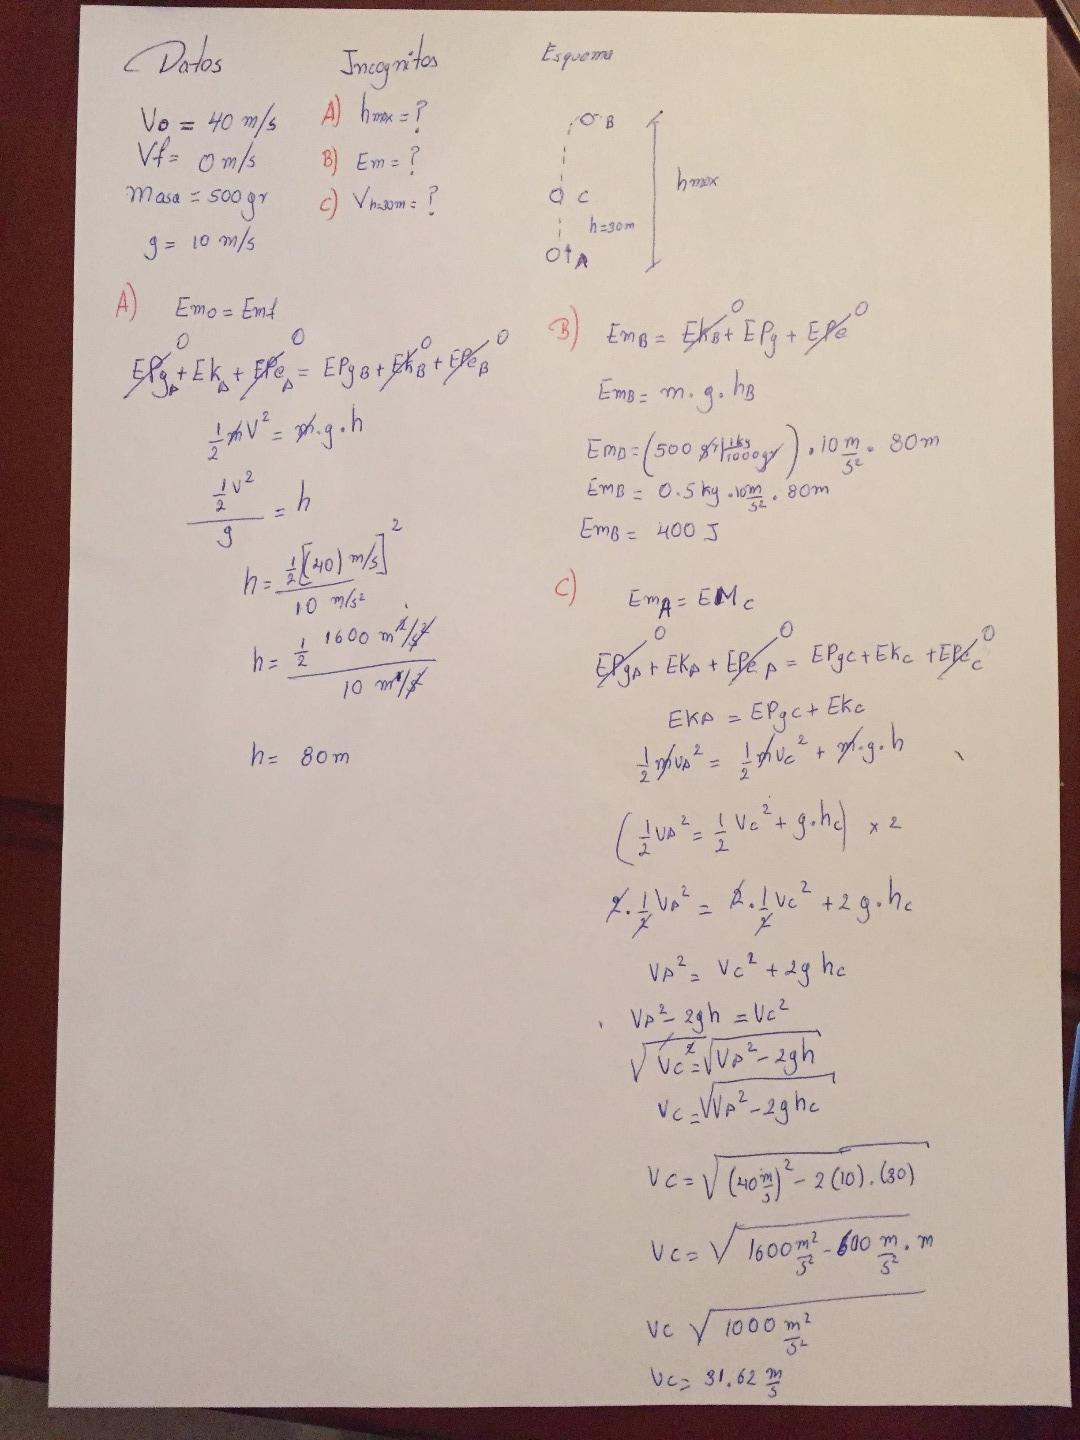 Datos
Vo = 40 m/s
Vf = 0 m/s
Masa = 500gr
g = 10 m/s
Incognitos
A) hmax = ?
B) Em = ?
C) Vh=30m = ?
Esquema
B
C
h=30m
A
hmax
A) Emo = Emf
EPgA + EkA + EPeA = EPgB + EkB + EPeB
0 0 0 0
1/2 mV² = m.g.h
1/2 v² / g = h
h = 1/2 [(40) m/s]² / 10 m/s²
h = 1/2 1600 m²/s² / 10 m/s²
h = 80m
B) EmB = EkB + EPg + EPe
0 0
EmB = m.g.hB
EmB = (500 gr | 1kg / 1000gr) . 10 m/s² . 80m
EmB = 0.5 kg . 10 m/s² . 80m
EmB = 400 J
C) EmA = EMC
EPgA + EKA + EPeA = EPgC + EKC + EPeC
0 0 0
EKA = EPgC + EKC
1/2 mVA² = 1/2 mVC² + m.g.h
(1/2 VA² = 1/2 VC² + g.hc) x 2
2.1/2 VA² = 2.1/2 VC² + 2 g.hc
VA² = VC² + 2g hc
VA² - 2gh = VC²
√VC² = √VA² - 2gh
VC = √VA² - 2ghc
VC = √(40 m/s)² - 2(10).(30)
VC = √1600 m²/s² - 600 m/s² . m
VC √1000 m²/s²
VC = 31.62 m/s